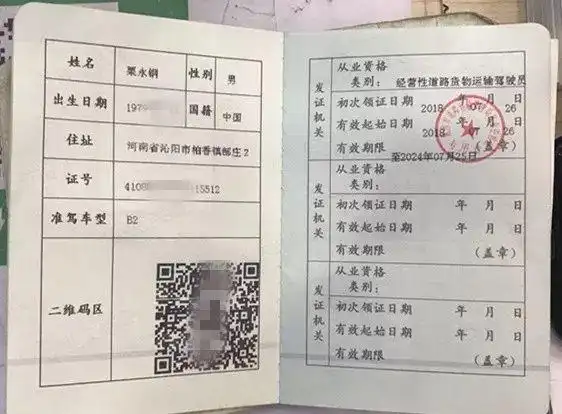 姓名 栗水钢 性别 男
出生日期 197 国籍 中国
住址 河南省沁阳市柏香镇郜庄2
证号 4108 5512
准驾车型 B2
二维码区
发证机关
从业资格
类别: 经营性道路货物运输驾驶员
初次领证日期 2018 年 07 月 26 日
有效起始日期 2018 年 07 月 26 日
有效期限 (盖章)
至2024年07月25日
发证机关
从业资格
类别:
初次领证日期 年 月 日
有效起始日期 年 月 日
有效期限 (盖章)
发证机关
从业资格
类别:
初次领证日期 年 月 日
有效起始日期 年 月 日
有效期限 (盖章)